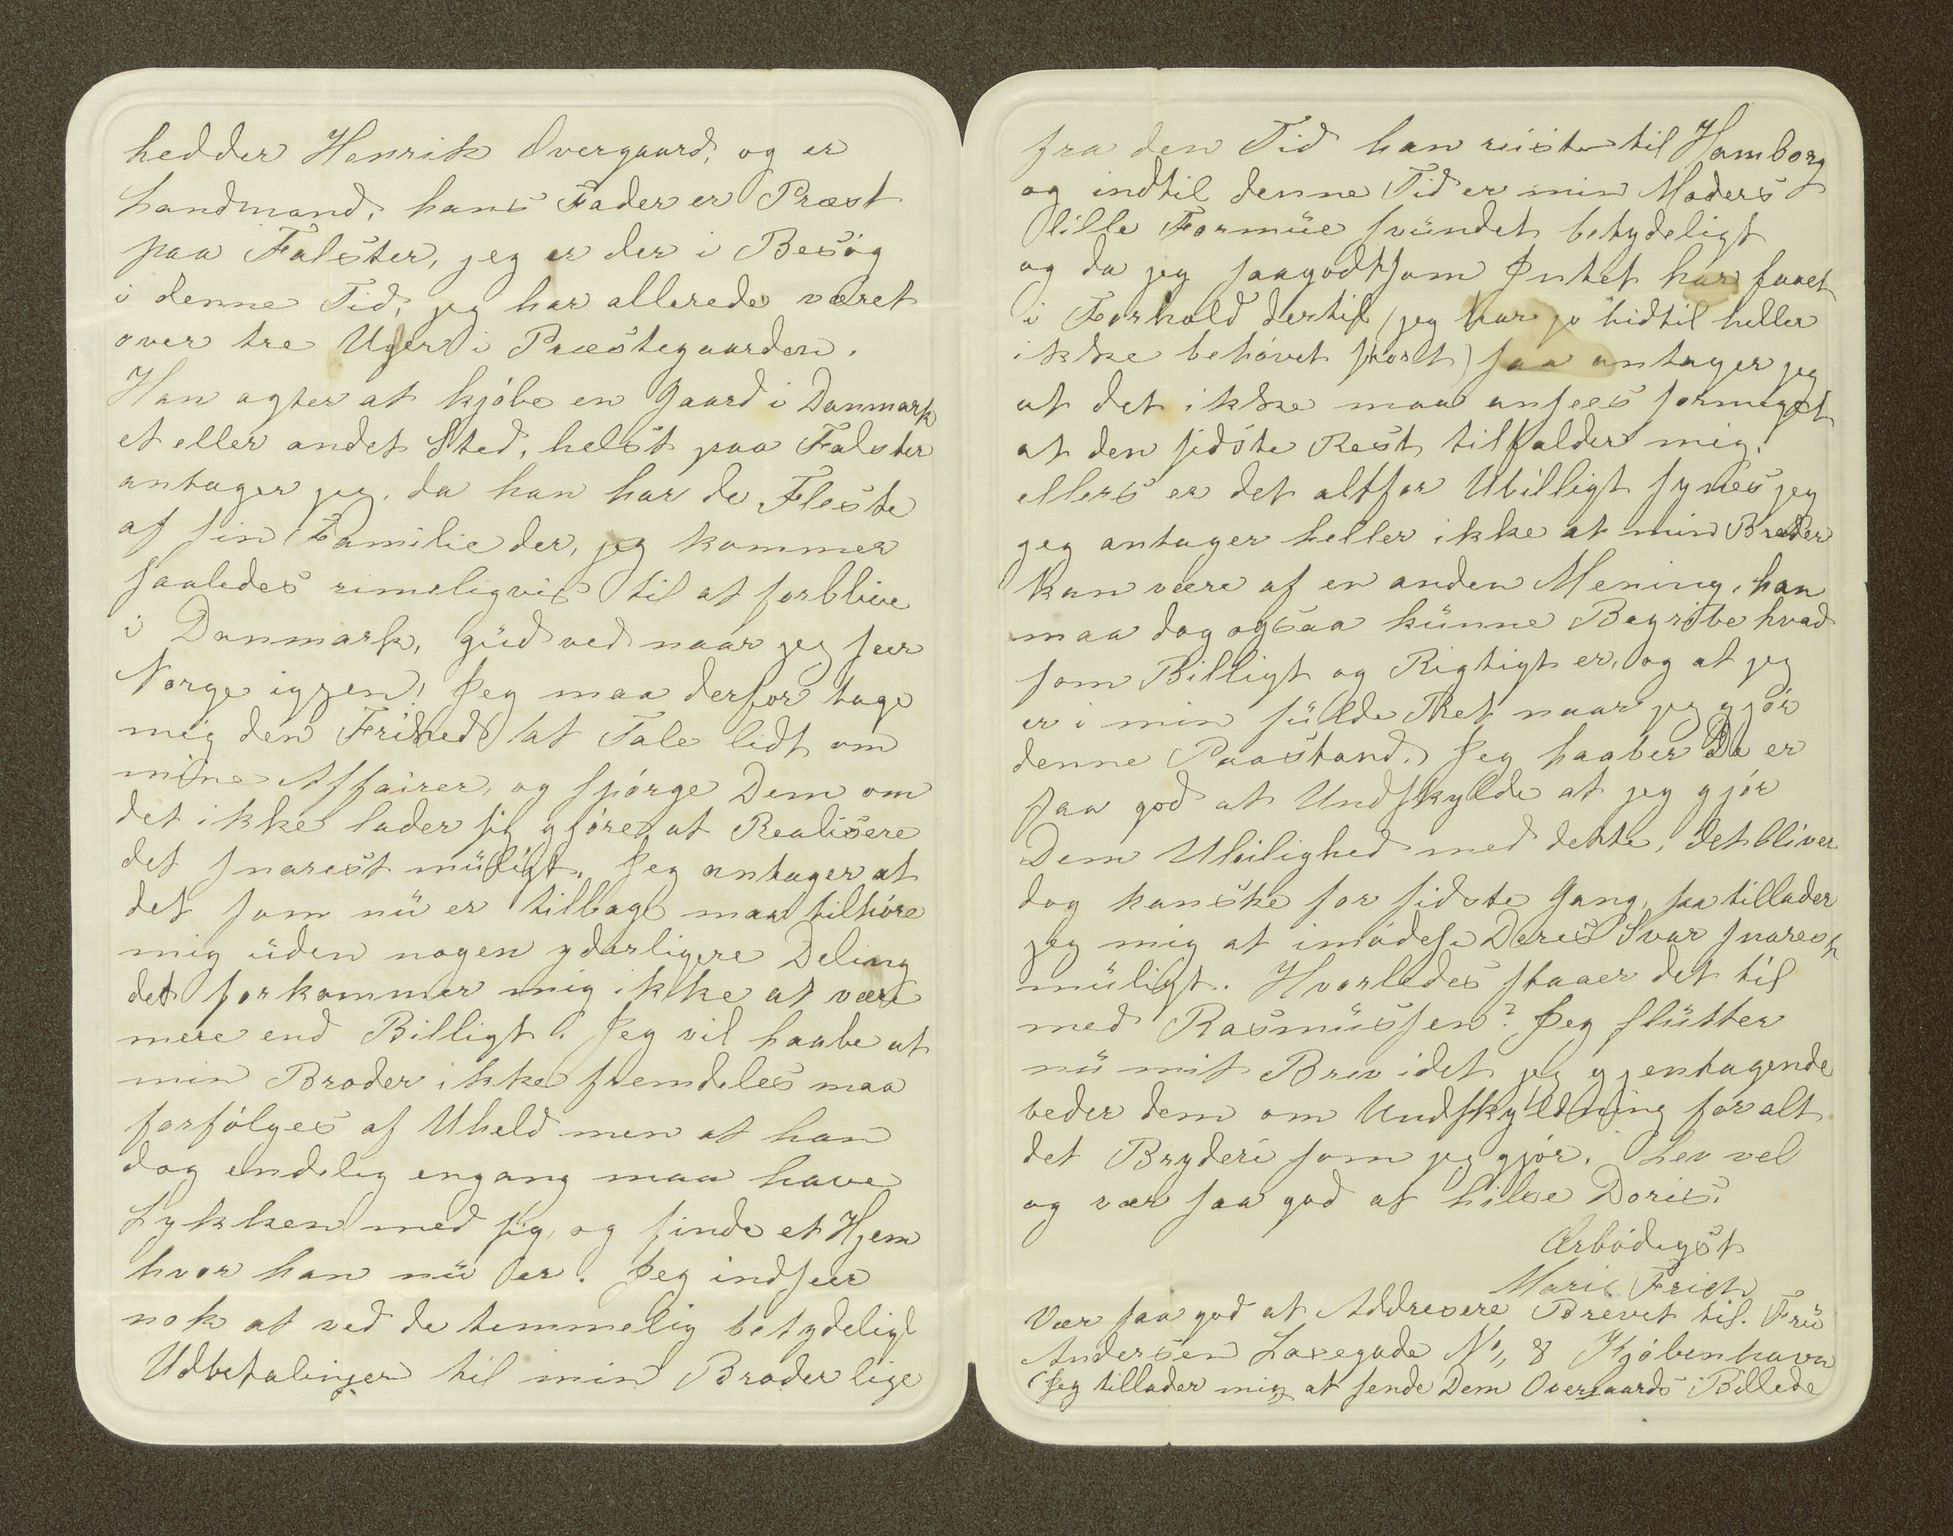 hedder Henrik Overgaard, og er
Landmand, hans Fader er Præst
paa Falster, jeg er der i Besög
i denne Tid, jeg har allerede været
over tre Uger i Præstegaarden.
Han agter at kjöbe en Gaard i Danmark
et eller andet Sted, helst paa Falster
antager jeg, da han har de Fleste
af sin Familie der, jeg kommer
saaledes rimeligvis til at forblive
i Danmark, gud ved naar jeg seer
Norge igjen! Jeg maa derfor tage
mig den Frihed at Tale lidt om
mine Affairer, og spörge Dem om
det ikke lader sig gjöre, at Realisere
det snarest muligt. Jeg antager at
det som nu er tilbage maa tilhöre
mig uden nogen yderligere Deling
det forkommer mig ikke at være
mere end Billigt. Jeg vil haabe at
min Broder ikke fremdeles maa
forfölges af Uheld men at han
dog endelig engang maa have
Lykken med sig, og finde et Hjem
hvor han nu er. Jeg indseer
nok at ved de temmelig betydelige
Udbetalinger til min Broder lige
fra den Tid han reiste til Hamborg
og indtil denne Tid er min Moders
lille Formue svundet betydeligt
og da jeg saagodtsom Intet har faaet
i Forhold dertil (jeg har jo hidtil heller
ikke behövet stort) saa antager jeg
at det ikke maa ansees formeget
at den sidste Rest tilfalder mig,
ellers er det altfor Ubilligt synes jeg
jeg antager heller ikke at min Broder
kan være af en anden Mening, han
maa dog ogsaa kunne Begribe hvad
som Billigt og Rigtigt er, og at jeg
er i min fulde Ret naar jeg gjör
denne Paastand. Jeg haaber De er
saa god at Undskylde at jeg gjör
Dem Uleilighed med dette, det bliver
dog kanske for sidste Gang, saa tillader
jeg mig at imödese Deres Svar snarest
muligt. Hvorledes staaer det til
med Rasmussen? Jeg slutter
nu mit Brev idet jeg gjentagende
beder dem om Undskyldning for alt
det Bryderi som jeg gjör. Lev vel
og vær saa god at hilse Doris.
Ærbödigst
Marie Frich
Vær saa god at Addresere Brevet til. Fru
Andersen Laxegade No 8 Kjöbenhavn
(Jeg tillader mig at sende Dem Overgaards Billede